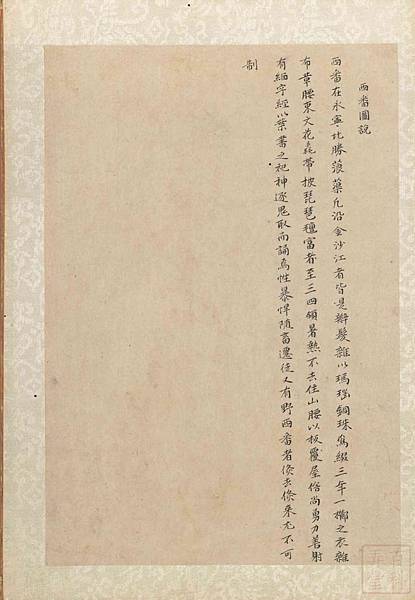 西番圖說
西番在永寧北勝蒗蕖凡沿金沙江者皆是辮髮雜以瑪瑙銅珠為綴三年一櫛之衣雜
布革腰束文花毳帶披琵琶氊富者至三四領暑熱不去住山腰以板覆屋俗尚勇力善射
有細字經以葉書之祀神逐鬼取而誦焉性暴悍隨畜遷徙又有野西番者倏去倏來尤不可
制